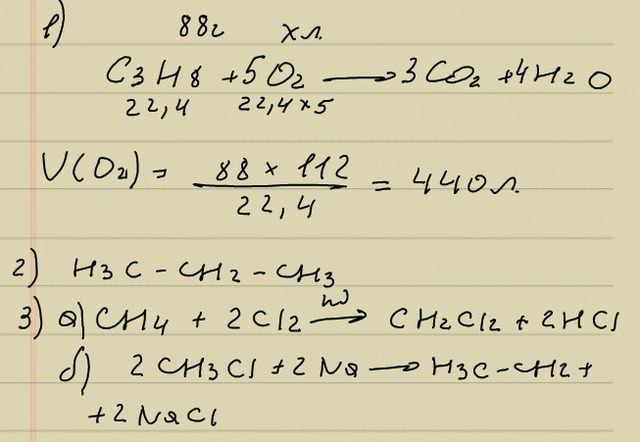 1)
88г x л.
C3H8 + 5O2 → 3CO2 + 4H2O
22,4 22,4 × 5
V(O2) = 88 × 112 / 22,4 = 440 л.
2) H3C - CH2 - CH3
3) а) CH4 + 2Cl2 hν→ CH2Cl2 + 2HCl
б) 2CH3Cl + 2Na → H3C - CH2 +
+ 2NaCl